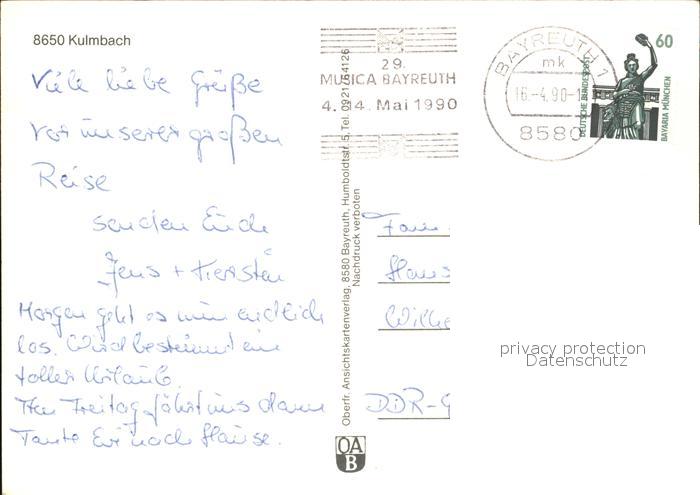 8650 Kulmbach
Viele liebe Grüße
vor unserer großen
Reise
senden Euch
Jens + Kersten
Morgen geht es nun endlich
los. Wird bestimmt ein
toller Urlaub.
Am Freitag fährt uns dann
Tante Evi nach Hause.
Oberfr. Ansichtskartenverlag, 8580 Bayreuth, Humboldtstr. 5, Tel. 0921/64126
Nachdruck verboten
OA
B
29.
MUSICA BAYREUTH
4.-14. Mai 1990
BAYREUTH 1
mk
16.-4.90-
8580
60
DEUTSCHE BUNDESPOST
BAVARIA MÜNCHEN
Fam.
Hans
Wilhe
DDR-9
privacy protection
Datenschutz